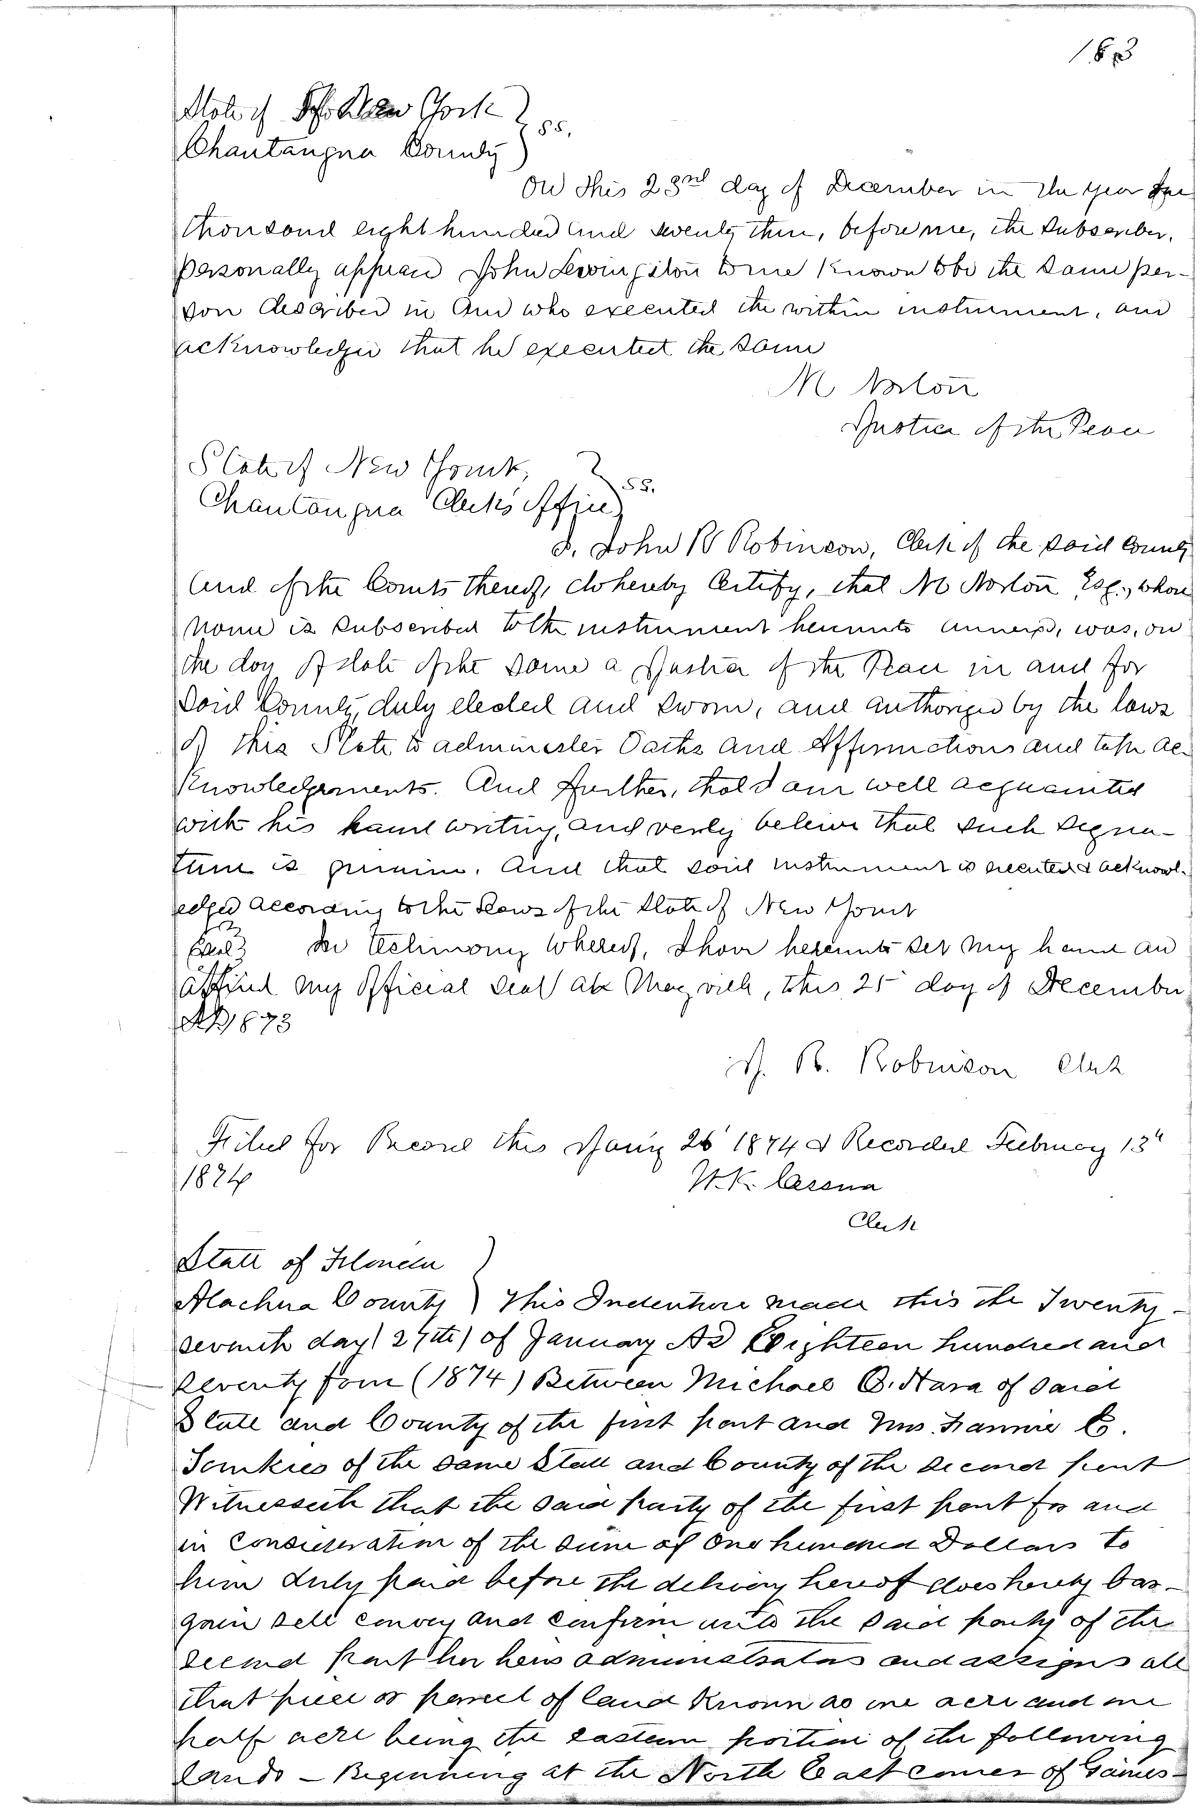 183
State of New York } ss.
Chautauqua County
On this 23rd day of December in the year one
thousand eight hundred and seventy three, before me, the subscriber,
personally appear John Levingston to me known to be the same per-
son described in and who executed the within instrument, and
acknowledged that he executed the same
M Norton
Justice of the Peace
State of New York, } ss.
Chautauqua Clerk's Office
I, John R Robinson, Clerk of the said County
and of the Courts thereof, do hereby Certify, that M Norton Esq., whose
name is subscribed to the instrument hereunto annexed, was, on
the day of date of the same a Justice of the Peace in and for
said County, duly elected and sworn, and authorized by the laws
of this State to administer Oaths and Affirmations and take ac-
knowledgements. And further, that I am well acquainted
with his hand writing, and verily believe that such signa-
ture is genuine. And that said instrument is executed & acknowl-
edged according to the Laws of the State of New York
{Seal} In testimony whereof, I have hereunto set my hand an
affixed my official seal at Mayville, this 25 day of December
AD 1873
J. R. Robinson Clerk
Filed for Record this Jan'y 26 1874 & Recorded February 13"
1874
W. K. Cessna
Clerk
State of Florida }
Alachua County } This Indenture made this the Twenty-
seventh day (27th) of January AD Eighteen hundred and
seventy four (1874) Between Michael O. Hara of said
State and County of the first part and Mrs. Fannie C.
Tomkies of the same State and County of the second part
Witnesseth that the said party of the first part for and
in consideration of the sum of One hundred Dollars to
him duly paid before the delivery hereof does hereby bar-
gain sell convey and confirm unto the said party of the
second part her heirs administrators and assigns all
that piece or parcel of land known as one acre and one
half acre being the eastern portion of the following
lands - Beginning at the North East corner of Gaines-